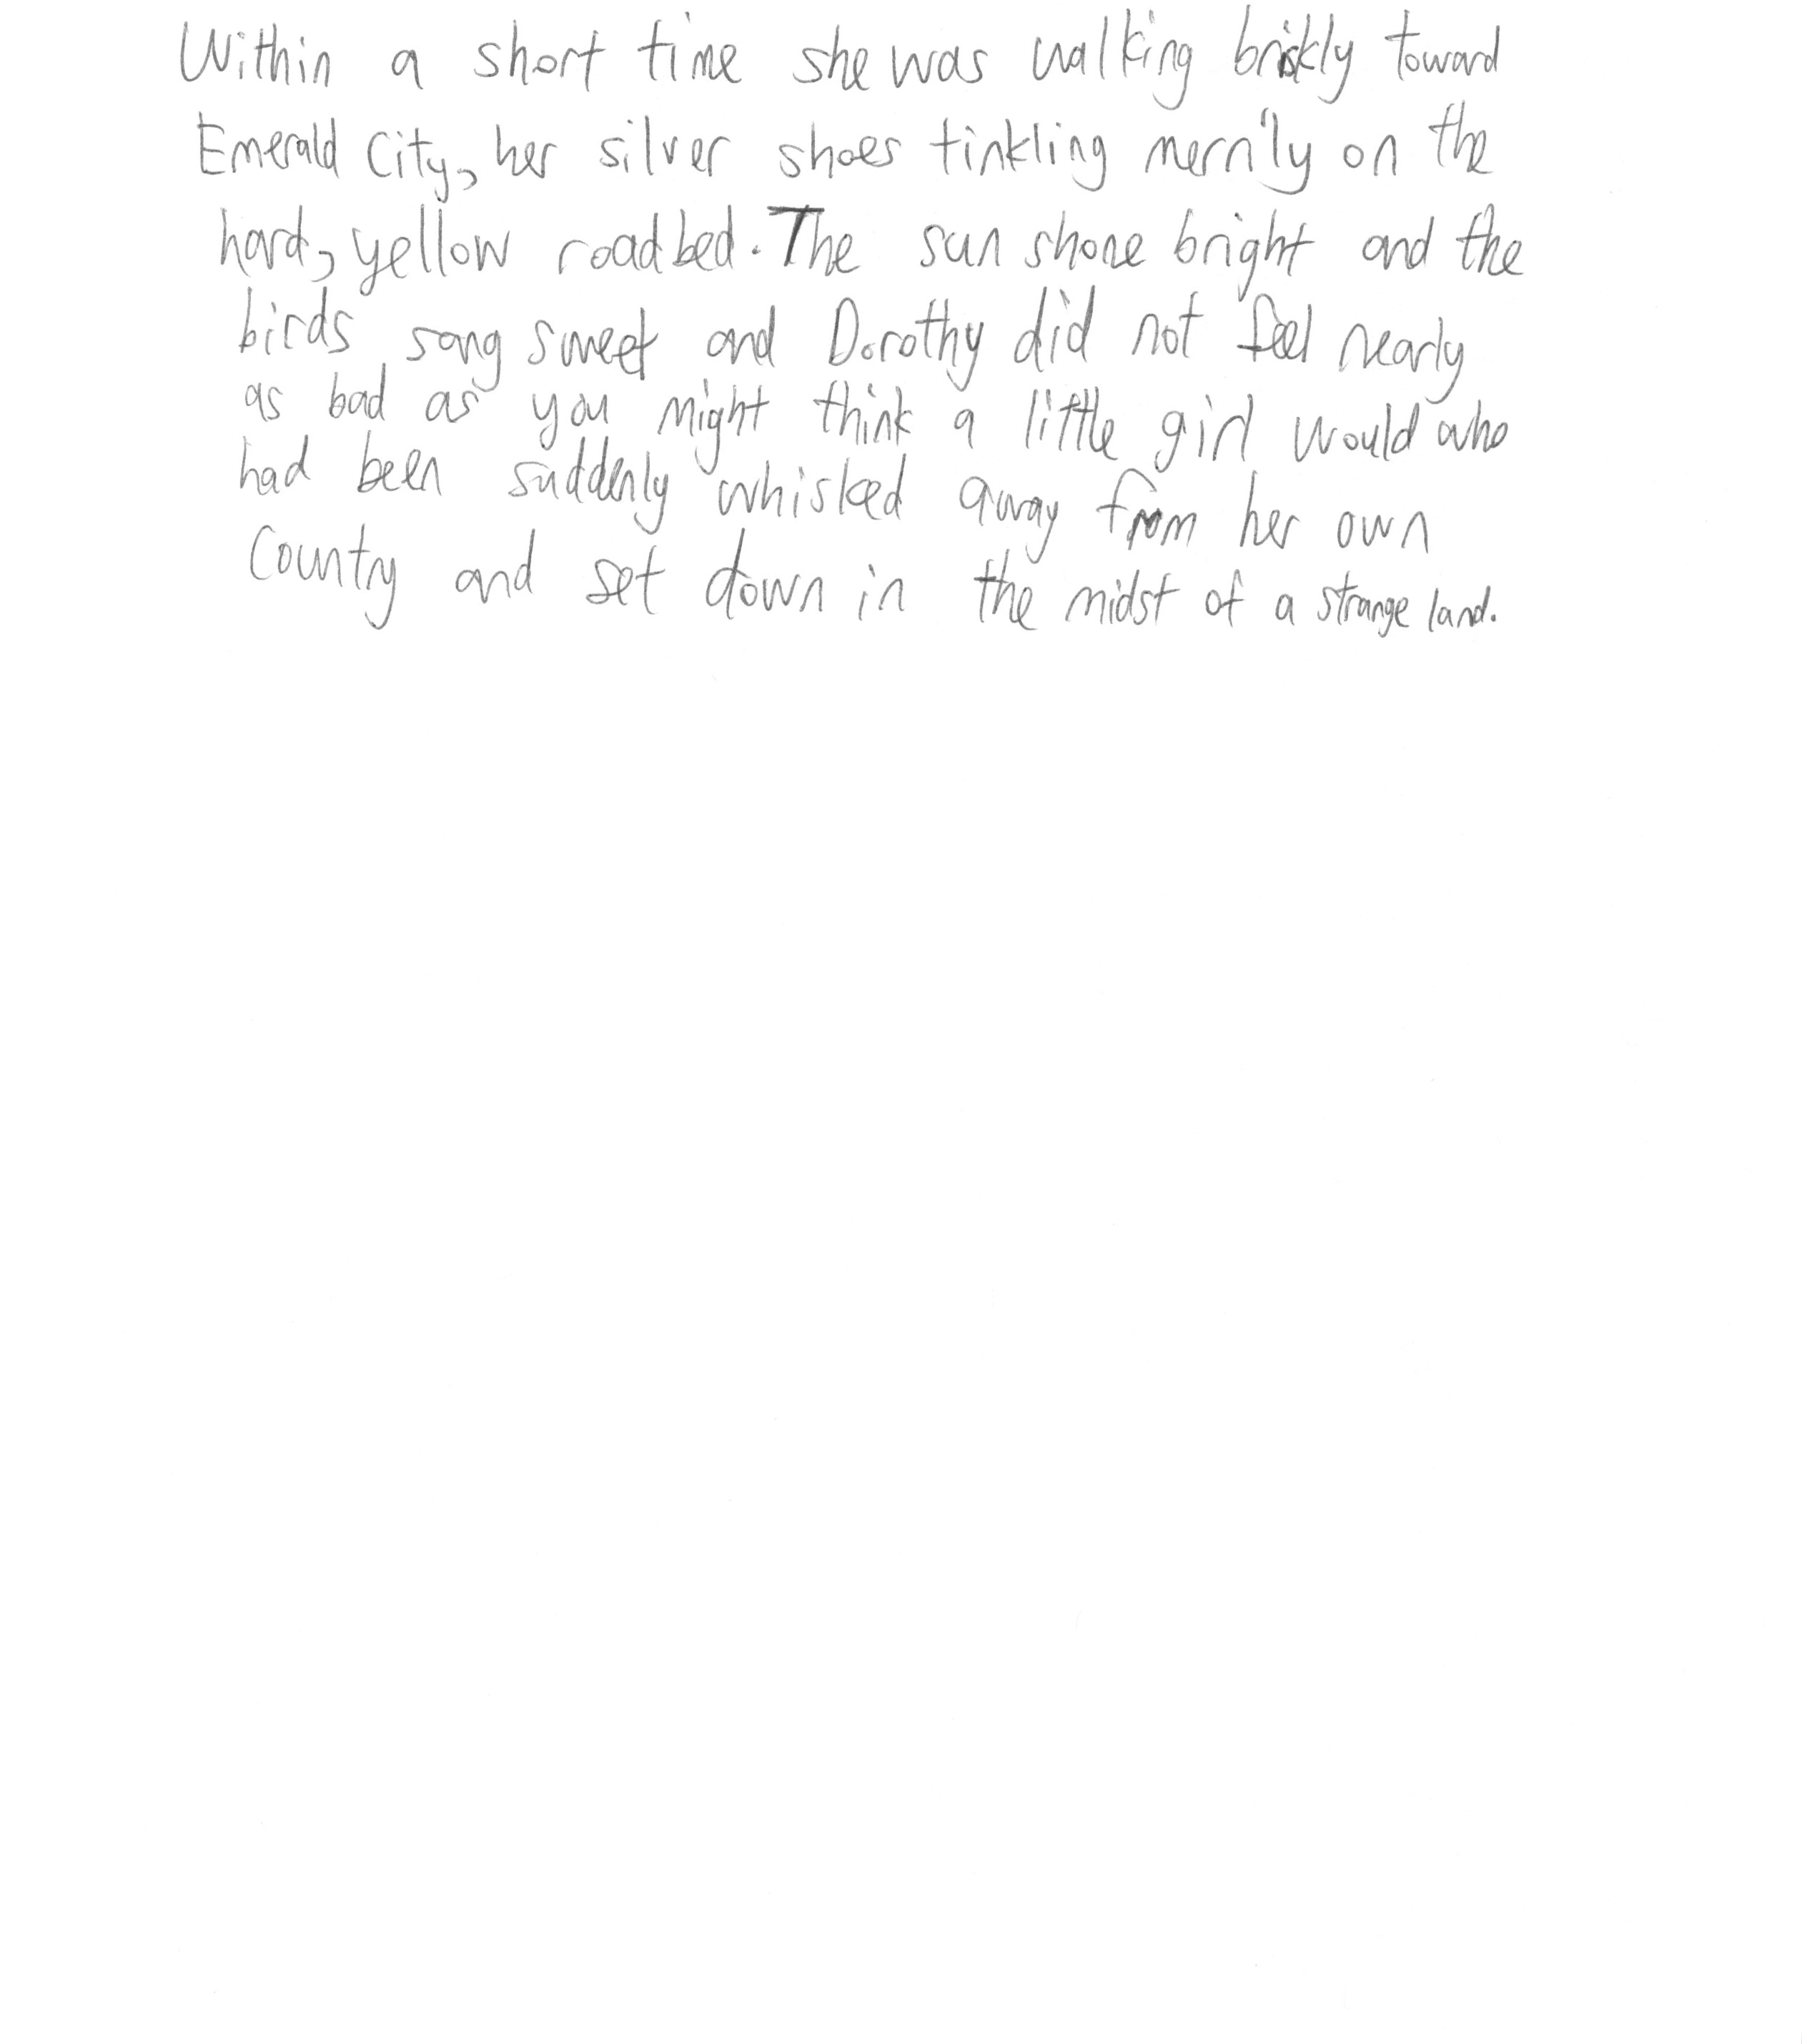 Within a short time she was walking briskly toward
Emerald City, her silver shoes tinkling merrily on the
hard, yellow roadbed. The sun shone bright and the
birds sang sweet and Dorothy did not feel nearly
as bad as you might think a little girl would who
had been suddenly whisked away from her own
country and set down in the midst of a strange land.